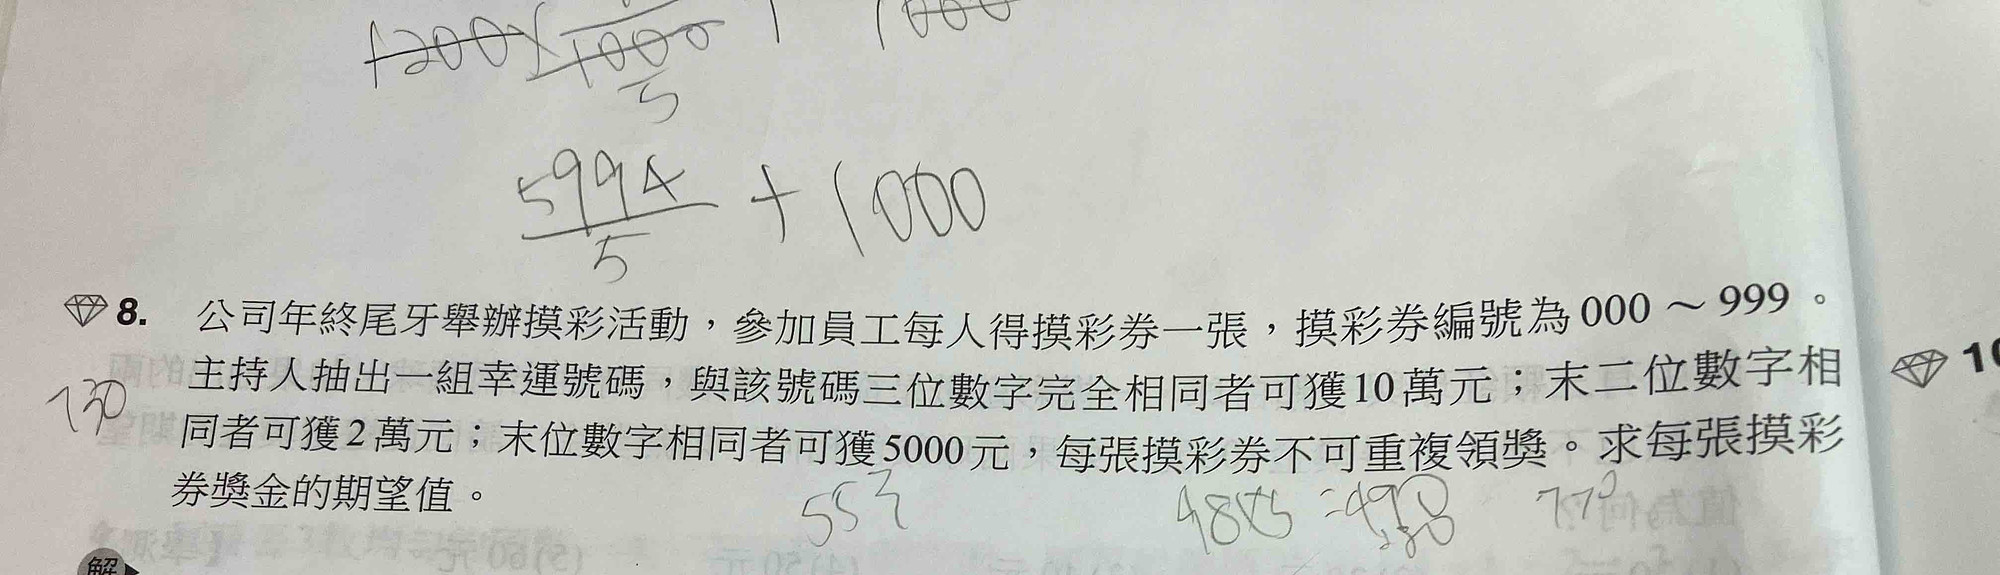 1200×
1000
5
1000
5994
5
+ 1000
8. 公司年終尾牙舉辦摸彩活動，參加員工每人得摸彩券一張，摸彩券編號為 000～999。
主持人抽出一組幸運號碼，與該號碼三位數字完全相同者可獲 10 萬元；末二位數字相
10
730
同者可獲 2 萬元；末位數字相同者可獲 5000 元，每張摸彩券不可重複領獎。求每張摸彩
券獎金的期望值。
553
770
解